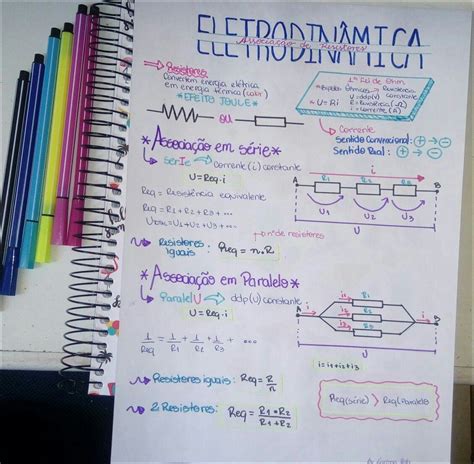 ELETRODINÂMICA
Associação de Resistores
→ Resistores
Convertem energia elétrica
em energia térmica (calor)
*EFEITO JOULE*
OU
1ª Lei de Ohm
*U = Ri
U = ddp (V)
R = Resistência (Ω)
i = Corrente (A)
constante
Corrente
Sentido Convencional: + → -
Sentido Real: - → +
*Associação em série*
Série → Corrente (i) constante
U = Req . i
Req = Resistência equivalente
Req = R1 + R2 + R3 + ...
Utotal = U1 + U2 + U3 + ...
A
R1
R2
R3
B
U1
U2
U3
U
nº de resistores
Resistores
iguais: Req = n.R
*Associação em Paralelo*
ParalelU → ddp (U) constante
U = Req . i
1/Req = 1/R1 + 1/R2 + 1/R3 + ...
i
A
i1
R1
i2
R2
i3
R3
i
B
U
i = i1 + i2 + i3
Resistores iguais: Req = R/n
2 Resistores: Req = R1 * R2 / R1 + R2
Req (série) > Req (Paralelo)